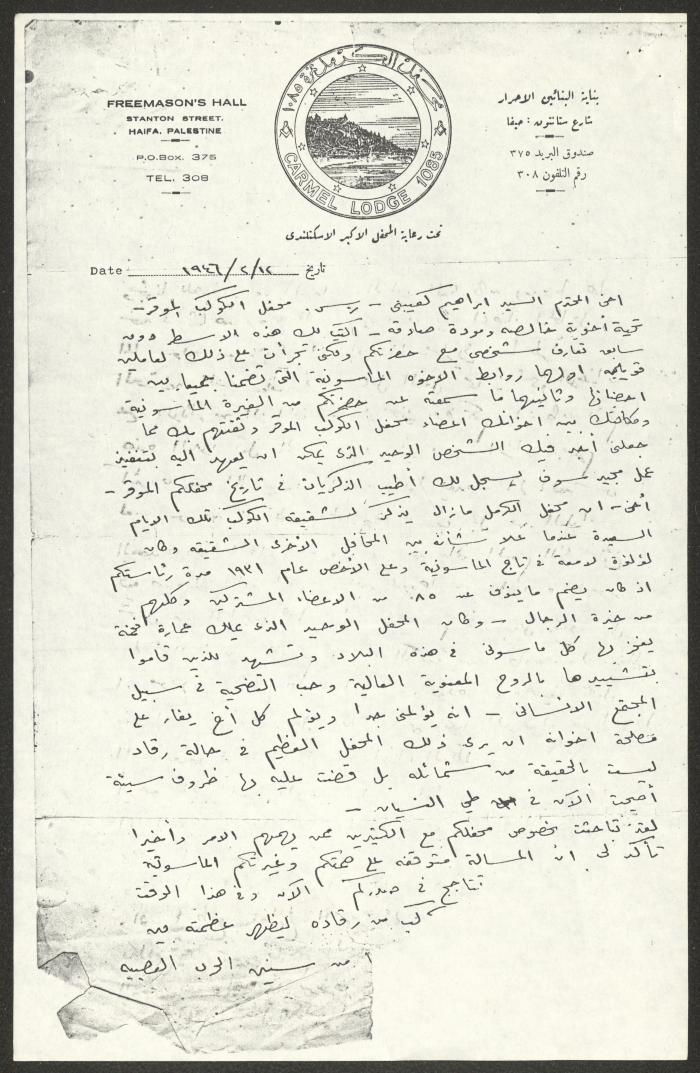 FREEMASON'S HALL
STANTON STREET.
HAIFA, PALESTINE
P.O.BOX. 375
TEL. 308
محفل الكرمل نمرة ١٠٨٥
CARMEL LODGE 1085
بناية البنائين الاحرار
شارع ستانتون : حيفا
صندوق البريد ٣٧٥
رقم التلفون ٣٠٨
تحت رعاية المحفل الاكبر الاسكتلندي
Date ١٩٤٦/٢/١٢ تاريخ
اخي المحترم السيد ابراهيم كعيبني - رئيس محفل الكوكب الموقر -
تحية أخوية خالصه ومودة صادقه - اكتب لك هذه الاسطر دون
سابق تعارف شخصي مع حضرتكم ولكني تجرأت على ذلك لعاملين
قويين اولهما روابط الاخوه الماسونية التي تضمنا جميعا بين
احضانها وثانيهما ما سمعته عن حضرتكم من الغيرة الماسونية
ومكانتك بين اخوانك اعضاء محفل الكوكب الموقر وثقتهم بك مما
جعلني أجد فيك الشخص الوحيد الذي يمكن ان يعهد اليه بتنفيذ
عمل مجيد سوف يسجل لك أطيب الذكريات في تاريخ محفلكم الموقر -
أخي - ان محفل الكرمل مازال يذكر لشقيقه الكوكب تلك الايام
السعيدة عندما علا شأنه بين المحافل الأخرى الشقيقه وكان
لؤلؤة لامعة في تاج الماسونية وعلى الأخص عام ١٩٣١ مدة رئاستكم
اذ كان يضم ما ينوف عن ٨٥ من الاعضاء المشتركين وكلهم
من خيرة الرجال - وكان المحفل الوحيد الذي يملك عمارة فخمة
يفخر بها كل ماسوني في هذه البلاد وتشهد للذين قاموا
بتشييدها بالروح المعنوية العالية وحب التضحية في سبيل
المجتمع الانساني - انه يؤلمني جدا ويؤلم كل أخ يغار على
مصلحة اخوانه ان يرى ذلك المحفل العظيم في حالة رقاد
ليست بالحقيقة من شمائله بل قضت عليه بها ظروف سيئة
أصبحت الآن في طي النسيان -
لقد تباحثت بخصوص محفلكم مع الكثيرين ممن يهمهم الامر وأخيرا
تأكد لي ان المسالة متوقفه على همتكم وغيرتكم الماسونية
تتأجج في صدركم الآن وفي هذا الوقت
من رقاده ليظهر عظمته بين
من سنين الحرب العصيبه